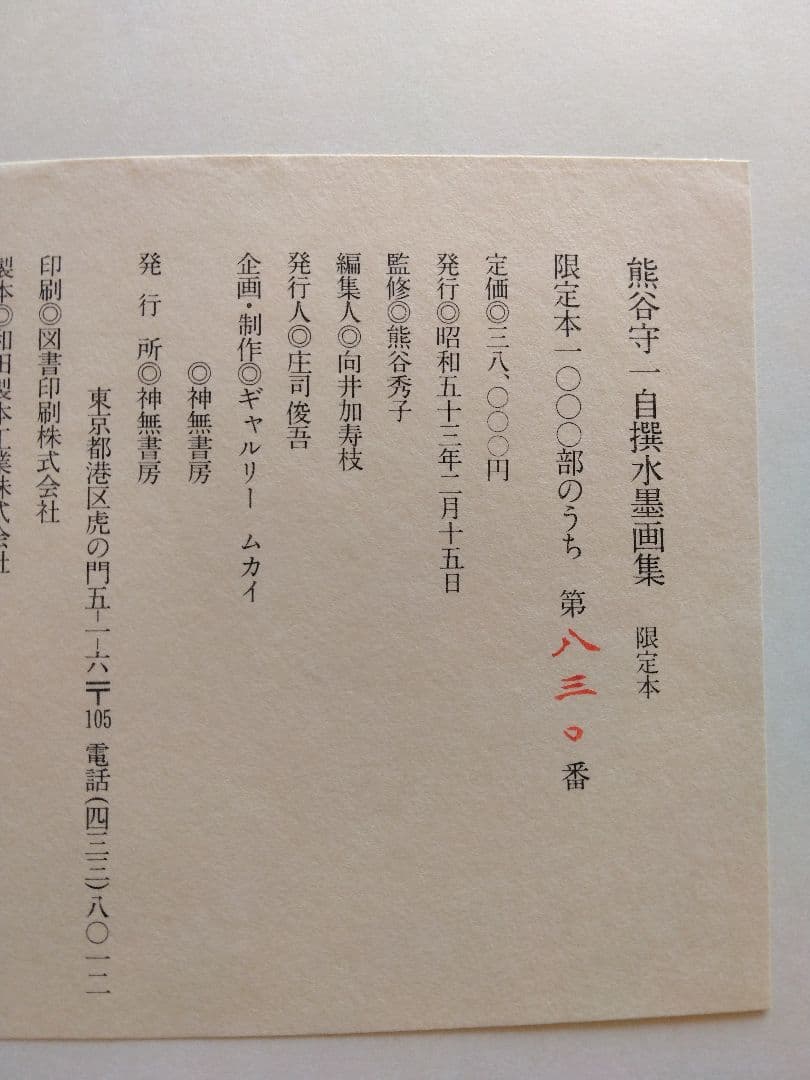 熊谷守一自撰水墨画集 限定本
限定本一〇〇〇部のうち 第八三〇番
定価◎三八、〇〇〇円
発行◎昭和五十三年二月十五日
監修◎熊谷秀子
編集人◎向井加寿枝
発行人◎庄司俊吾
企画・制作◎ギャルリー ムカイ
◎神無書房
発行所◎神無書房
東京都港区虎の門五-一-六〒105 電話(四三三)八〇一二
印刷◎図書印刷株式会社
製本◎和田製本工業株式会社